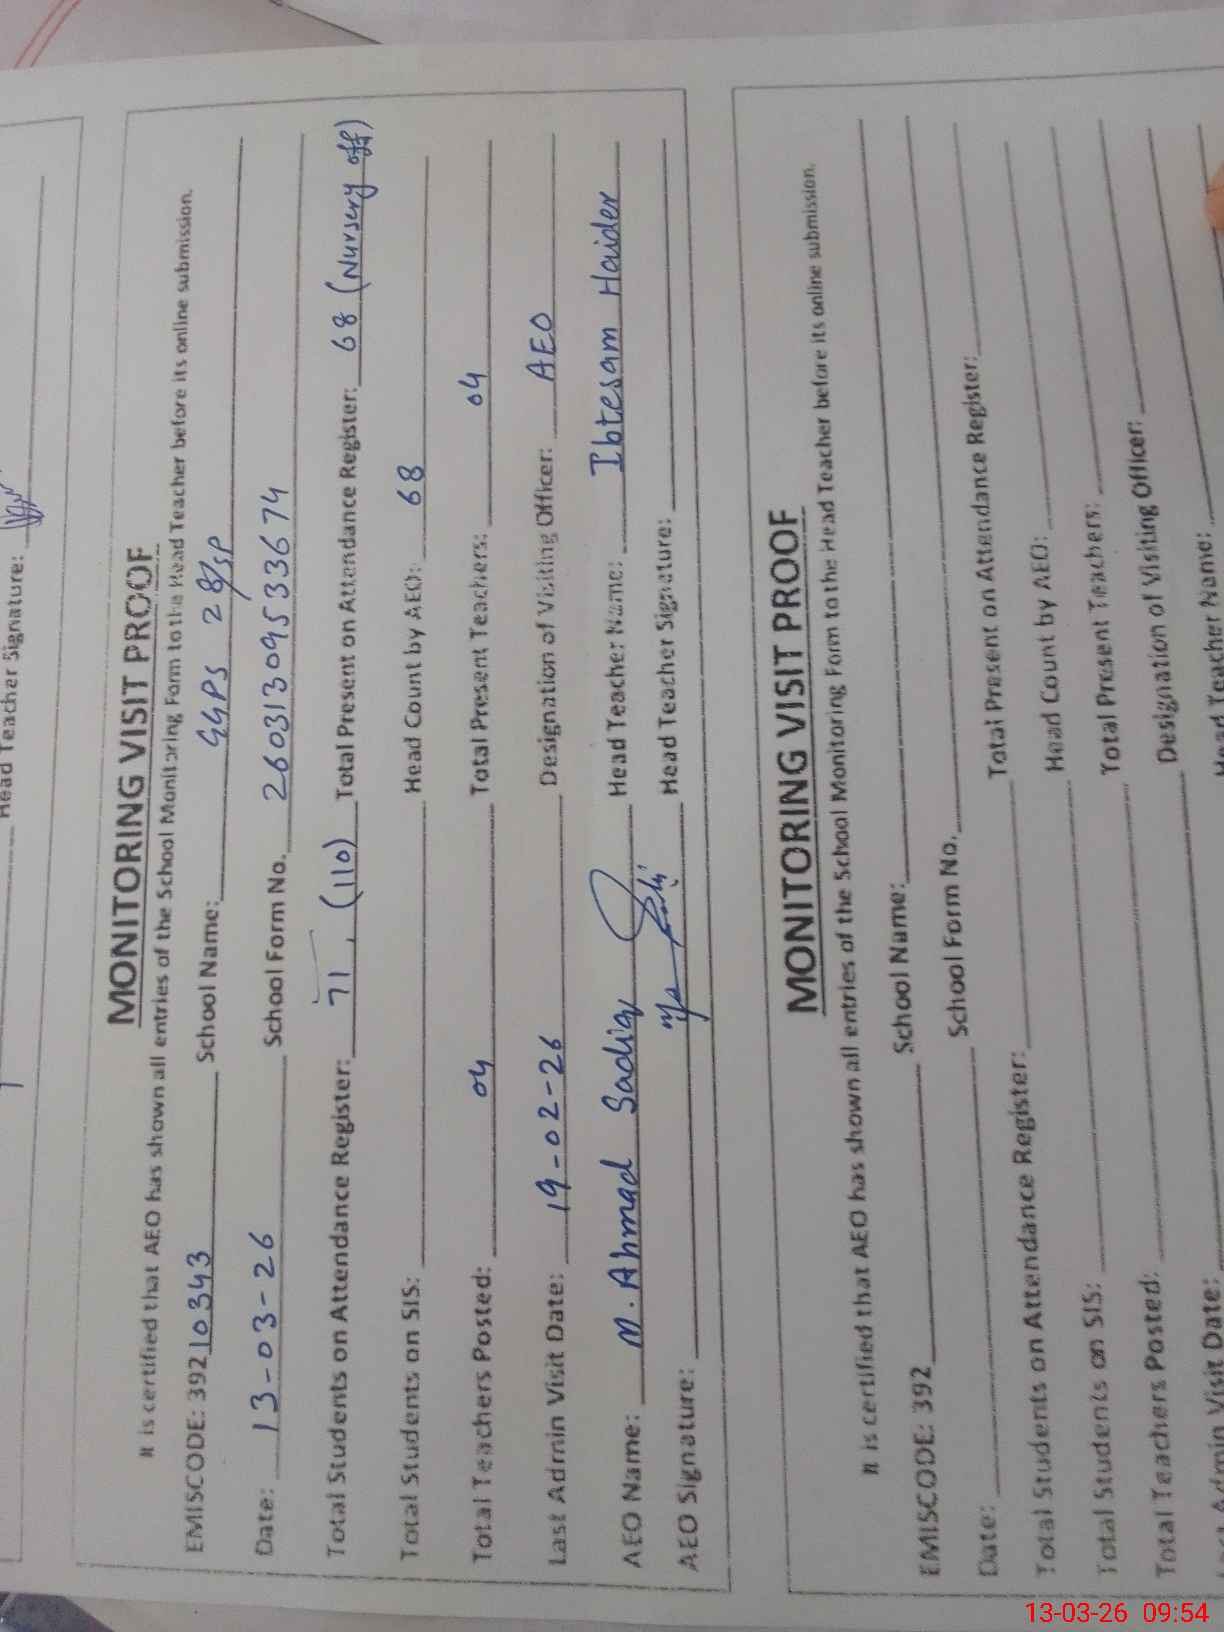 Head Teacher Signature:
MONITORING VISIT PROOF
It is certified that AEO has shown all entries of the School Monitoring Form to the Head Teacher before its online submission.
EMISCODE: 39210343 School Name: GGPS 28/SP
Date: 13-03-26 School Form No. 2603130953 3674
Total Students on Attendance Register: 71, (110) Total Present on Attendance Register: 68 (Nursery off)
Total Students on SIS: Head Count by AEO: 68
Total Teachers Posted: 04 Total Present Teachers: 04
Last Admin Visit Date: 19-02-26 Designation of Visiting Officer: AEO
AEO Name: M. Ahmad Sadiq Head Teacher Name: Ibtesam Haider
AEO Signature: Head Teacher Signature:
MONITORING VISIT PROOF
It is certified that AEO has shown all entries of the School Monitoring Form to the Head Teacher before its online submission.
EMISCODE: 392 School Name:
Date: School Form No.
Total Students on Attendance Register: Total Present on Attendance Register:
Total Students on SIS: Head Count by AEO:
Total Teachers Posted: Total Present Teachers:
Last Admin Visit Date: Designation of Visiting Officer:
Head Teacher Name:
13-03-26 09:54